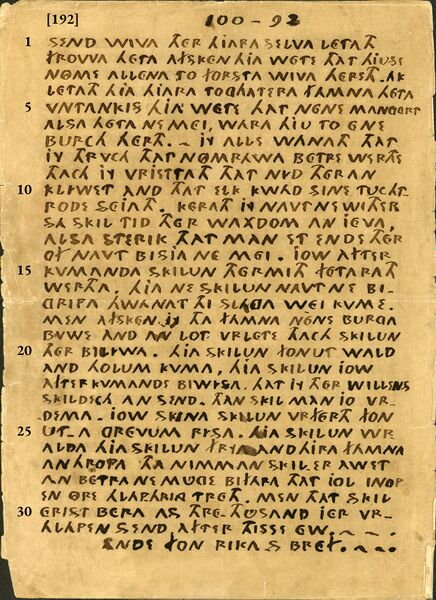 [192] 100-92
1 SEND WIVA THER HIARA SELVA LETATH
FROWA HETA AFSKEN HIA WETE THAT HIUSE
NOME ALLENA TO FORSTA WIVA HERETH. AK
LETATH HIA HIARA TOGHATERA FAMNA HETA
5 VNTANKIS HIA WETE THAT NENE MANGERT
ALSA HETA NE MEI, WARA HIU TO ENE
BURCH HERTH. — IJ ALLE WANATH THAT
IJ THRVCH THAT NOMRAWA BETRE WERTHE
THACH IJ VRJETTATH THAT NID THERAN
10 KLIWET AND THAT ELK KWAD SINE TUCHT-
RODE SEIATH. KERATH IJ NAVT NE WITHER
SA SKIL TID THER WAXDOM AN IEVA,
ALSA STERIK THAT MAN ET ENDE THER
OF NAVT BISIA NE MEI. IOW AFTER
15 KVMANDA SKILUN THERMITH FETERATH
WERTHA. HIA NE SKILUN NAVT NE BI-
GRIPA HWANAT THI SLAGA WEI KUME.
MEN AFSKEN IJ THA FAMNA NENE BURGA
BVWE AND AN LOT VRLETE THACH SKILUN
20 THER BILIWA. HIA SKILUN FON UT WALD
AND HOLUM KVMA, HIA SKILUN IOW
AFTERKVMANDE BIWISA. THAT IJ THER WILLENS
SKILDECH AN SEND. THAN SKIL MAN IO VR-
DEMA. IOW SKINA SKILUN VRFERTH FON
25 UT-A GREVUM RISA. HIA SKILUN WR-
ALDA HIA SKILUN FRYA AND HIRA FAMNA
ANHROPA THA NIMMAN SKIL ER AWET
AN BETRA NE MUGE BIFARA THAT IOL INOP
EN ORE HLAPHRING TRETH. MEN THAT SKIL
30 ERIST BERA AS THRE THUSAND IER VR-
HLAPEN SEND, AFTER THISSE EW. — . — .
ENDE FON RIKAS BREF. — . —